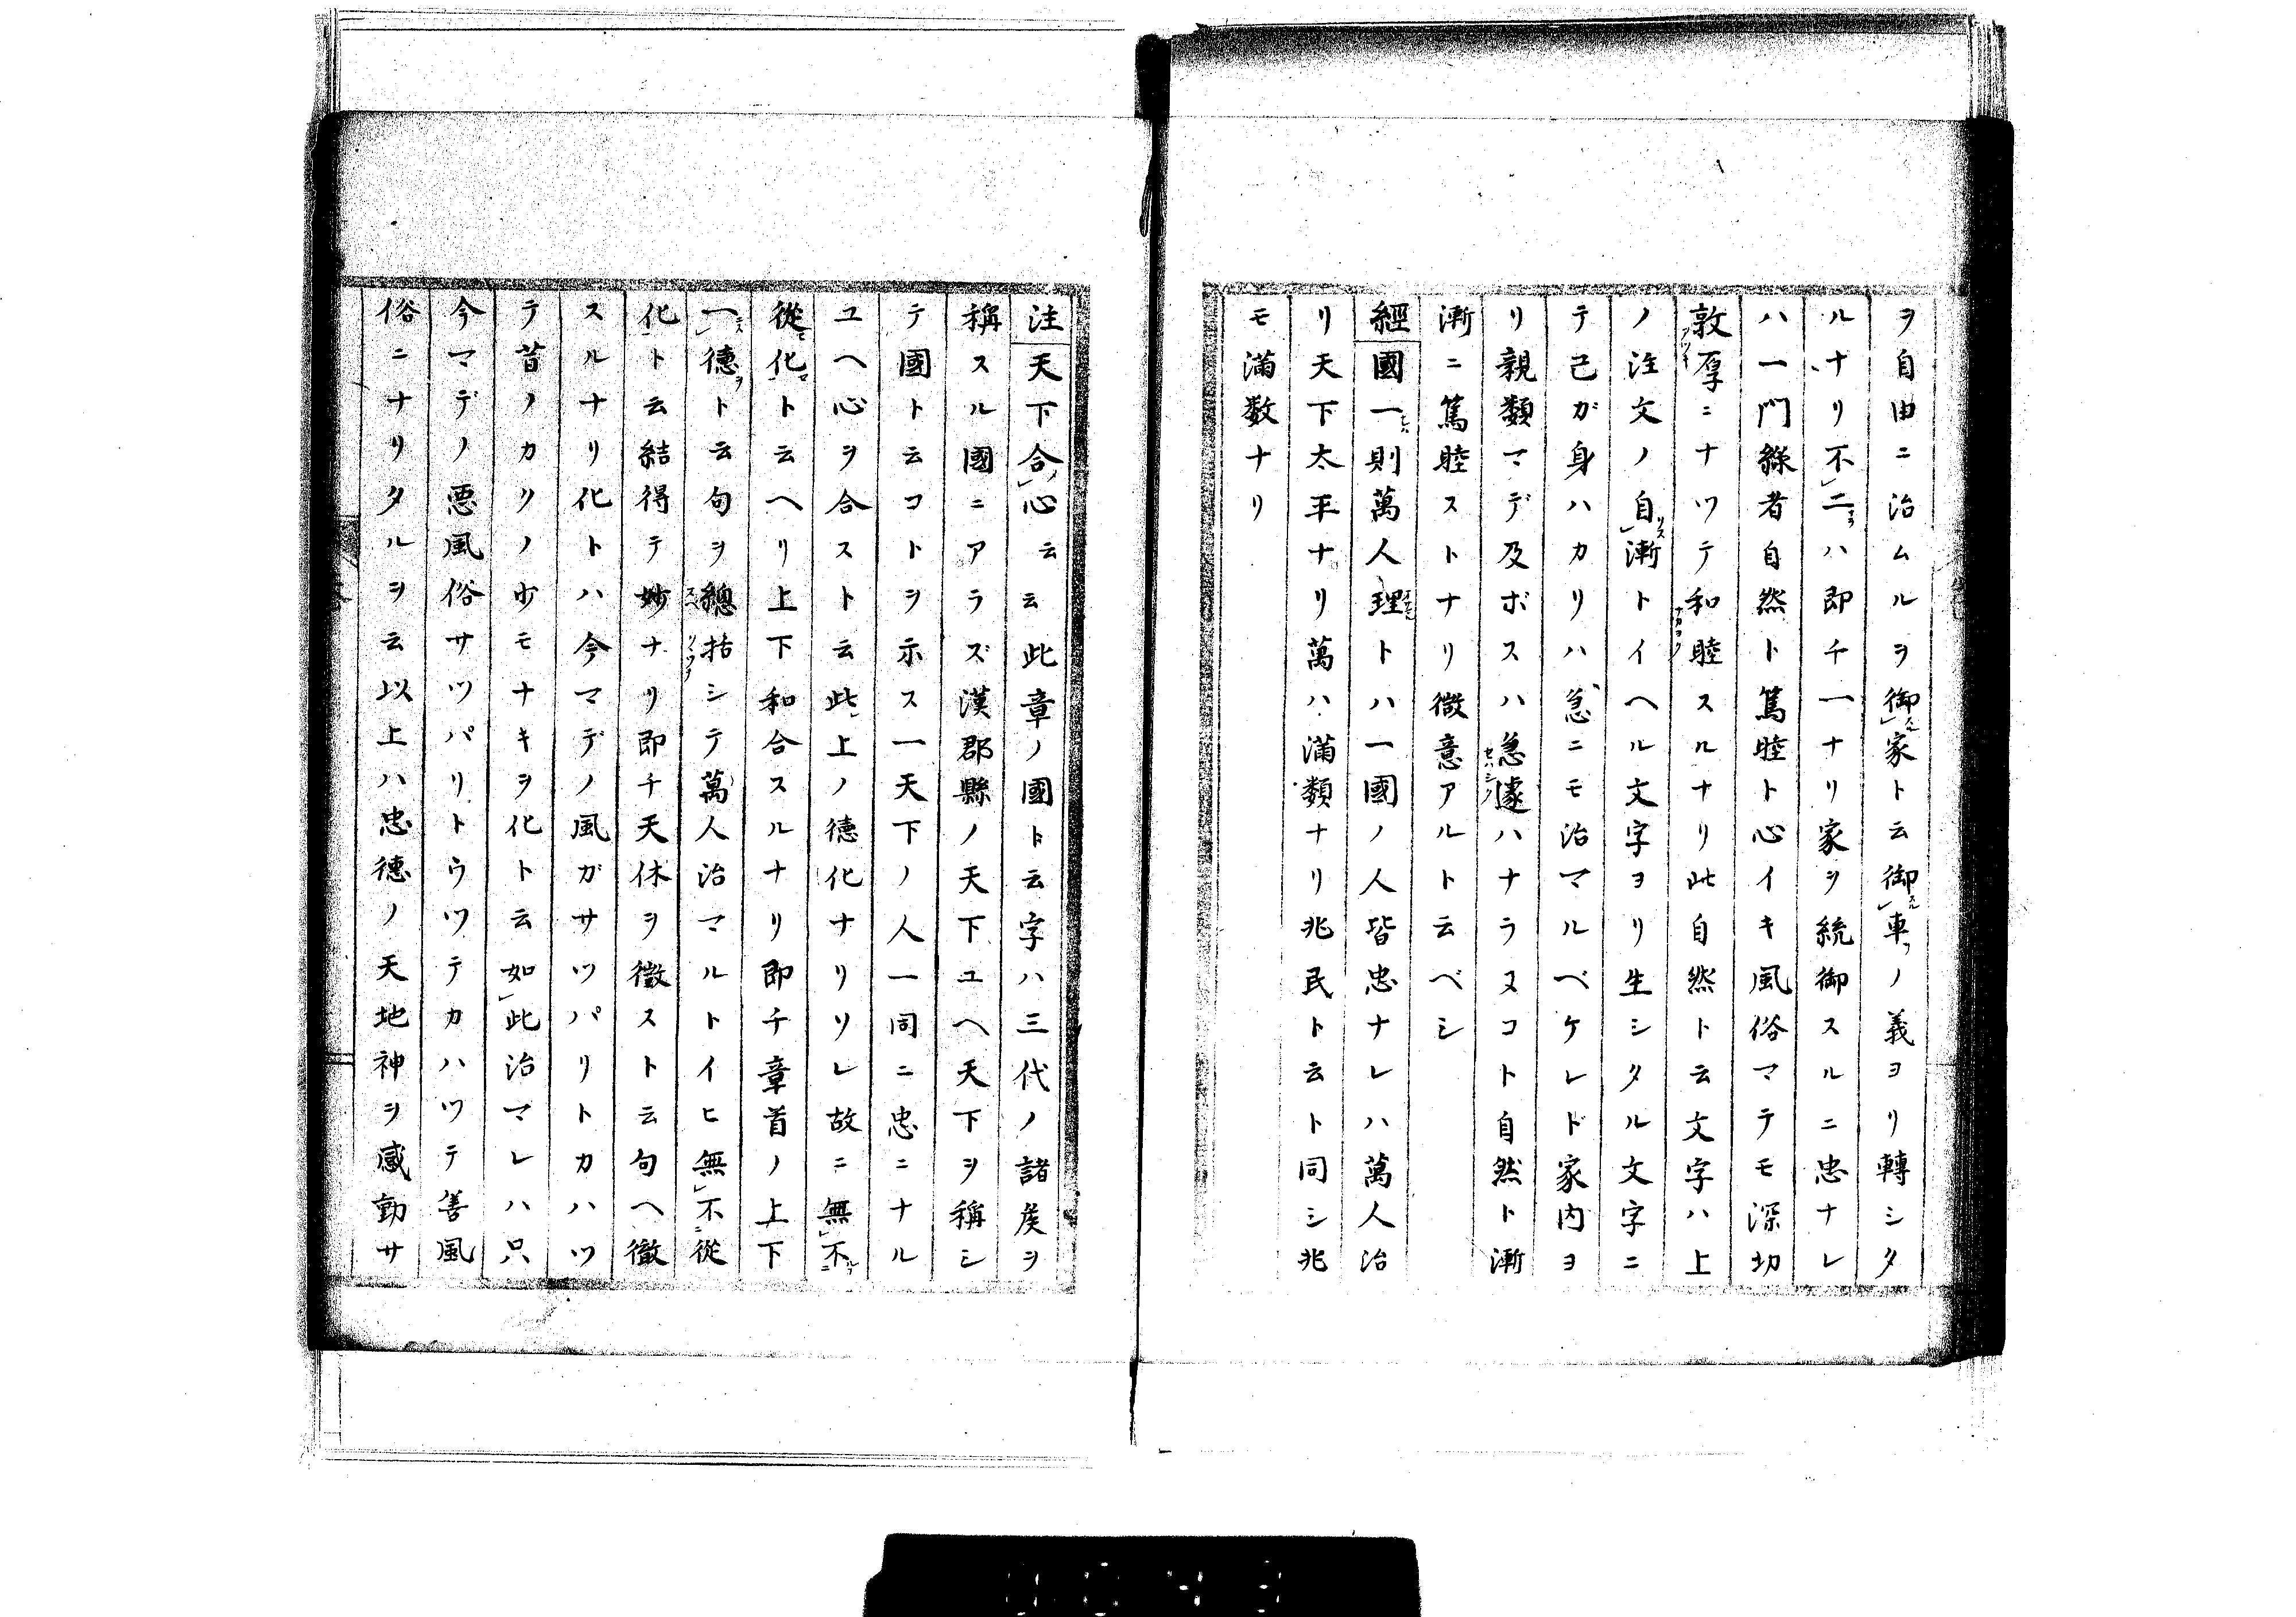 ヲ自由ニ治ムルヲ御家ト云御車ノ義ヨリ轉シタ
ルナリ不二ハ即チ一ナリ家ヲ統御スルニ忠ナレ
ハ一門縁者自然ト篤睦ト心イキ風俗マテモ深切
敦厚ニナツテ和睦スルナリ此自然ト云文字ハ上
ノ注文ノ自漸トイヘル文字ヨリ生シタル文字ニ
テ己ガ身ハカリハ急ニモ治マルベケレド家内ヨ
リ親類マデ及ボスハ急遽ハナラヌコト自然ト漸
漸ニ篤睦ストナリ微意アルト云ベシ
經國一則萬人理トハ一國ノ人皆忠ナレハ萬人治
リ天下太平ナリ萬ハ滿類ナリ兆民ト云ト同シ兆
モ滿数ナリ
注天下合心云云此章ノ國ト云字ハ三代ノ諸矦ヲ
稱スル國ニアラズ漢郡縣ノ天下ユヘ天下ヲ稱シ
テ國ト云コトヲ示ス一天下ノ人一同ニ忠ニナル
ユヘ心ヲ合スト云此上ノ德化ナリソレ故ニ無不
從化ト云ヘリ上下和合スルナリ即チ章首ノ上下
一德ト云句ヲ總括シテ萬人治マルトイヒ無不從
化ト云結得テ妙ナリ即チ天休ヲ徴スト云句ヘ徹
スルナリ化トハ今マデノ風ガサツパリトカハツ
テ昔ノカリノ少モナキヲ化ト云如此治マレハ只
今マデノ悪風俗サツパリトウツテカハツテ善風
俗ニナリタルヲ云以上ハ忠德ノ天地神ヲ感動サ